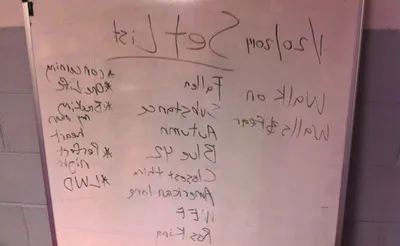 Set List
Walk on
Walls & Fear
Fallen
Substance
Autumn
Blue 42
Closest thing
American
*concerning
*One Life
*Breaking
my own
heart
*Perfect
night
*LWD